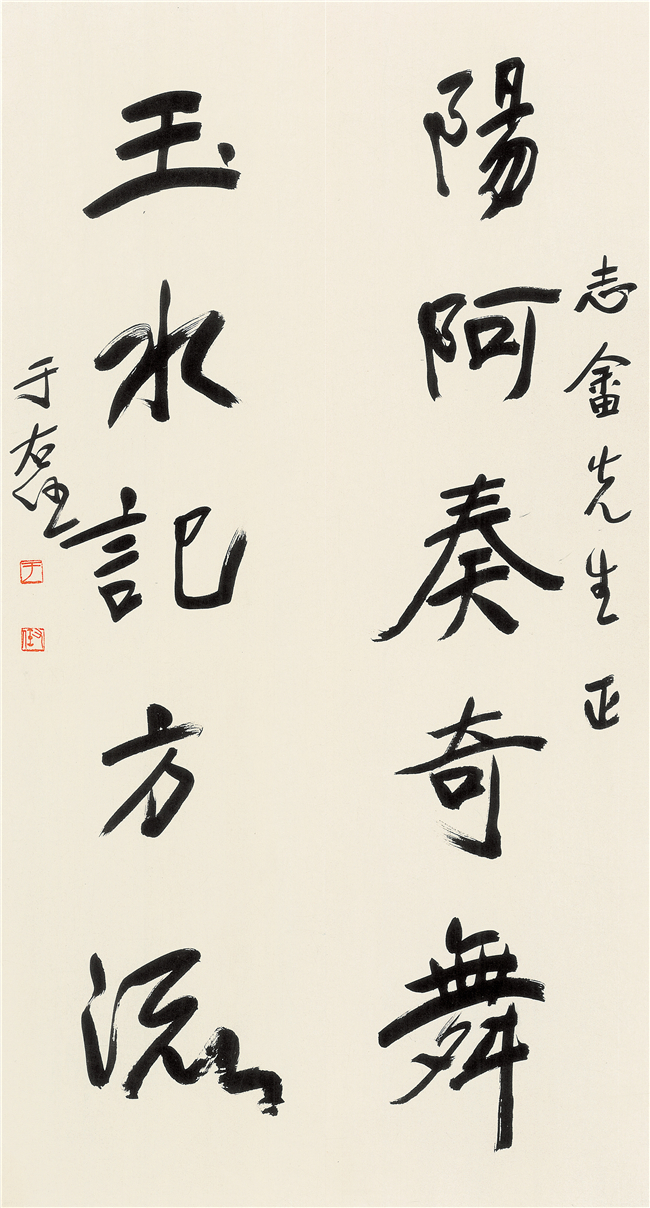 志畬先生正
陽阿奏奇舞
玉水記方流
于右任
于
右任